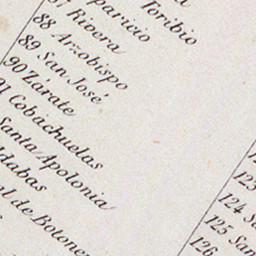 Toribio
Rivera
88 Arzobispo
89 San José
90 Zárate
91 Cobachuelas
Santa Apolonia
de Botoner
123
124 San
125 San
126